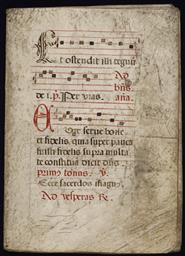 Et ostendit illi regnū
Ad
bn̄s.
de i. p. Per vias. an̄a.
Euge serve bone
et fidelis quia super pauca
fuisti fidelis supra multa
te constituā dicit dn̄s.
primus tonus. v.
Ecce sacerdos magnꝰ.
Ad vesperas Re.